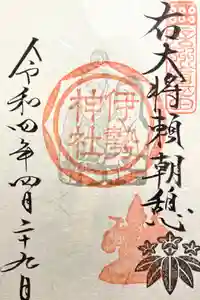 右大将頼朝憩
伊勢
神社
令和四年四月二十九日